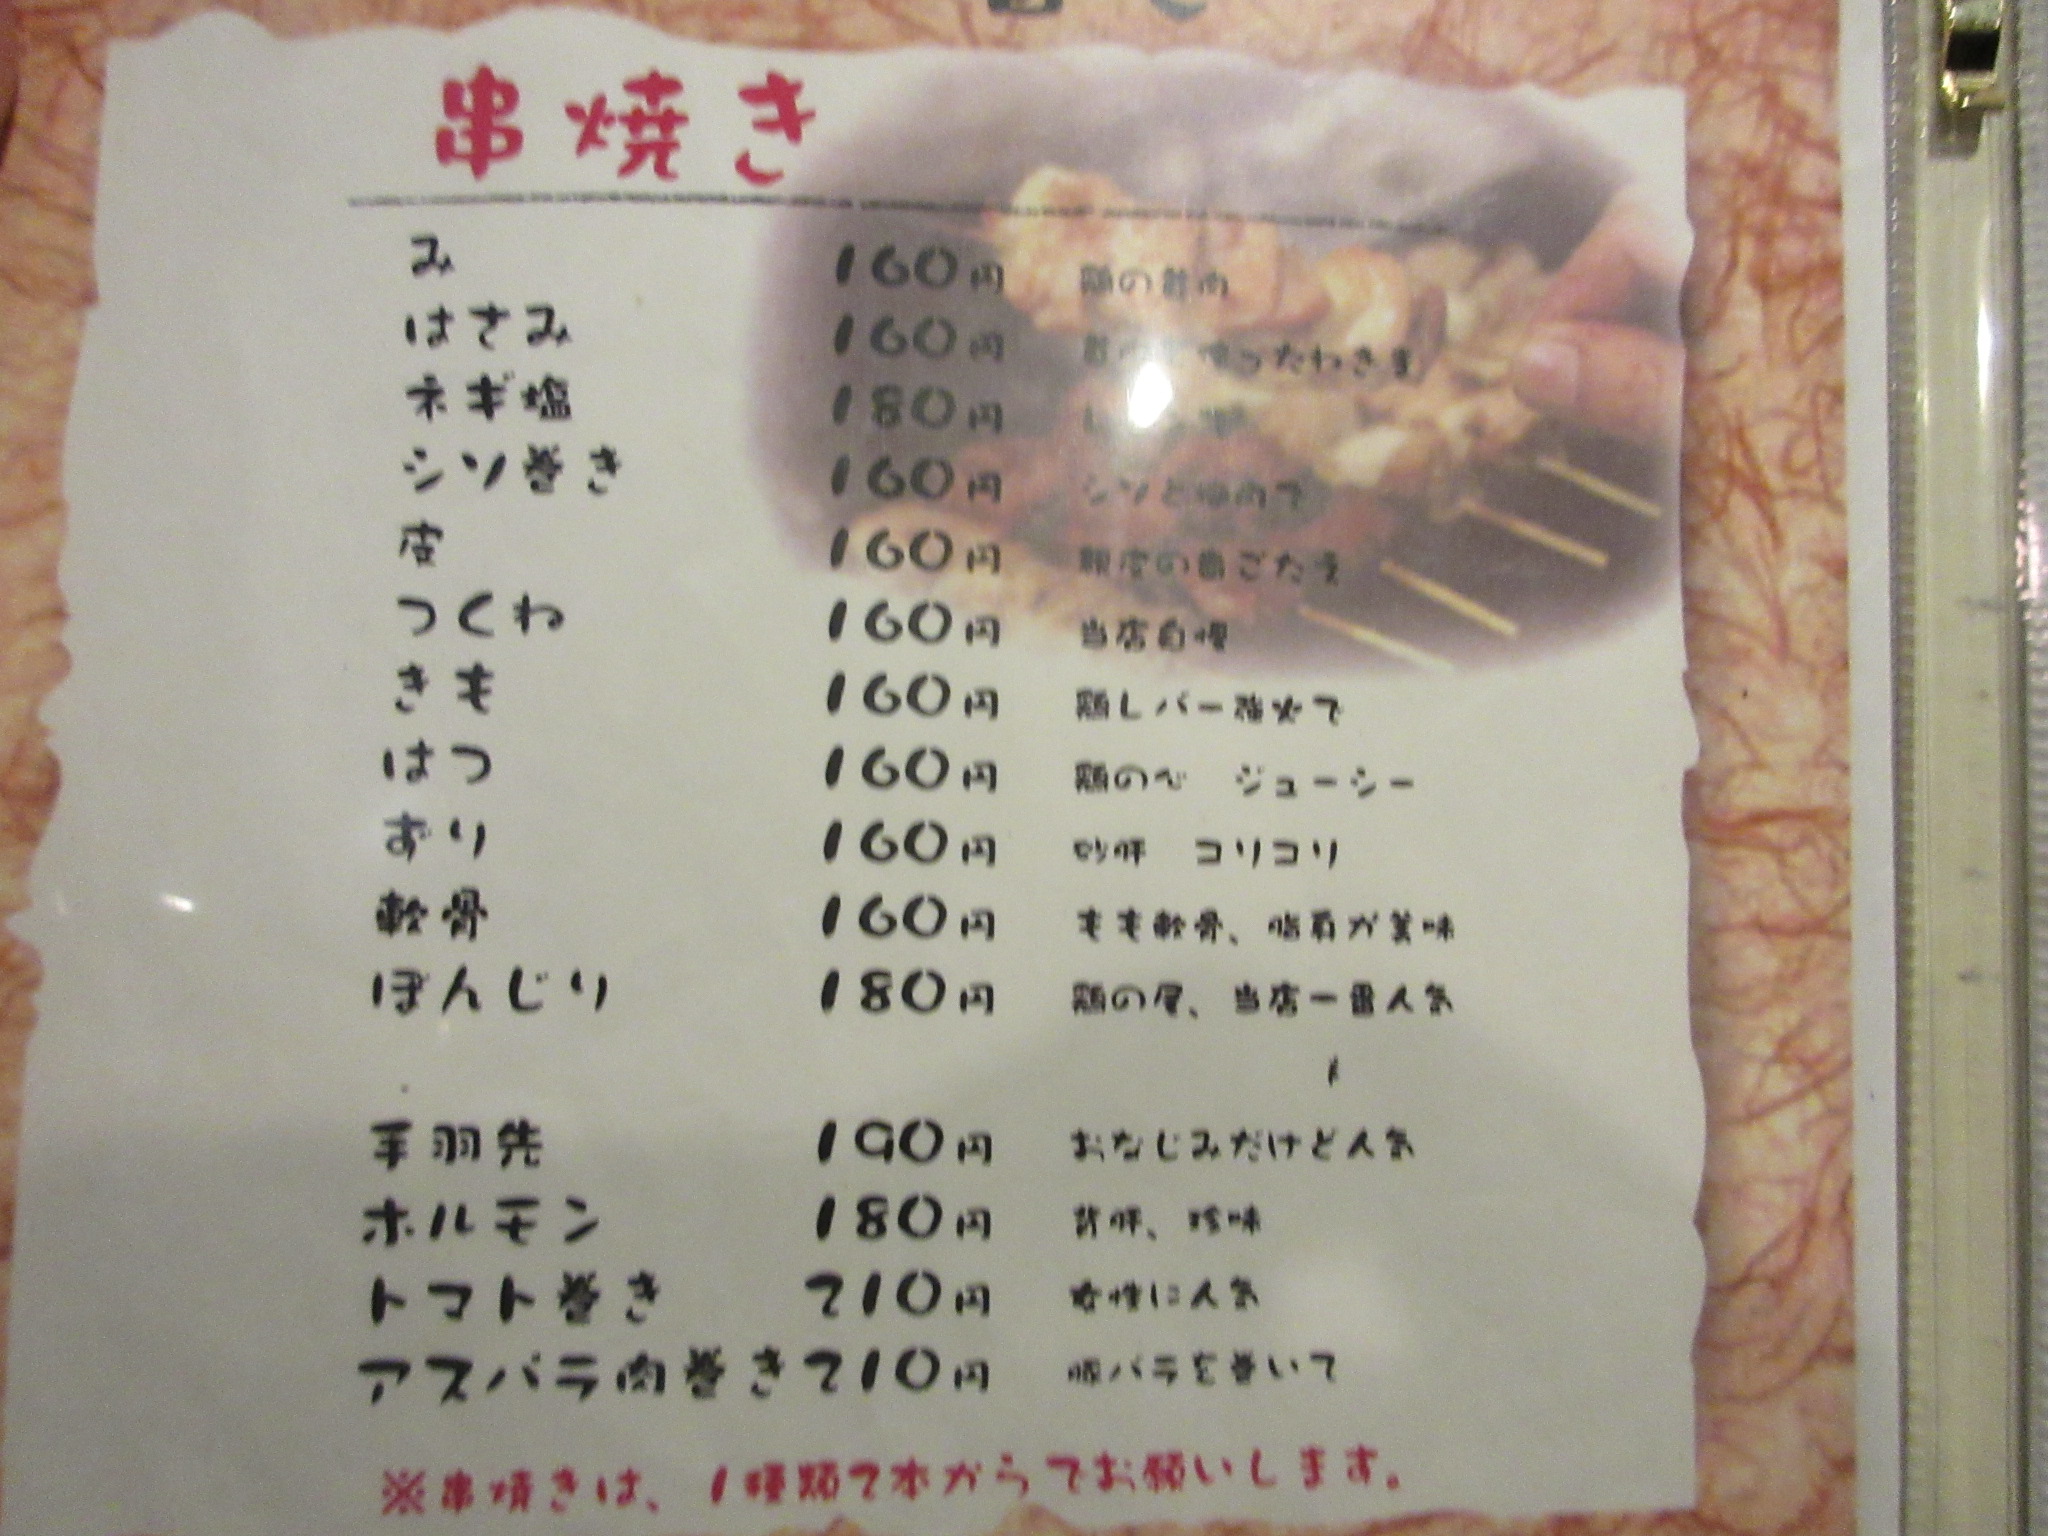 串焼き
み 160円 鶏の
はさみ 160円 使ったわさま
ネギ塩 180円
シソ巻き 160円 シソと梅肉で
皮 160円 親皮の歯ごたえ
つくね 160円 当店自慢
きも 160円 鶏レバー強火で
はつ 160円 鶏の心 ジューシー
ずり 160円 砂肝 コリコリ
軟骨 160円 もも軟骨、脂肩が美味
ぼんじり 180円 鶏の尾、当店一番人気
手羽先 190円 おなじみだけど人気
ホルモン 180円 背肝、珍味
トマト巻き 210円 女性に人気
アスパラ肉巻き 210円 豚バラを巻いて
※串焼きは、1種類2本からでお願いします。